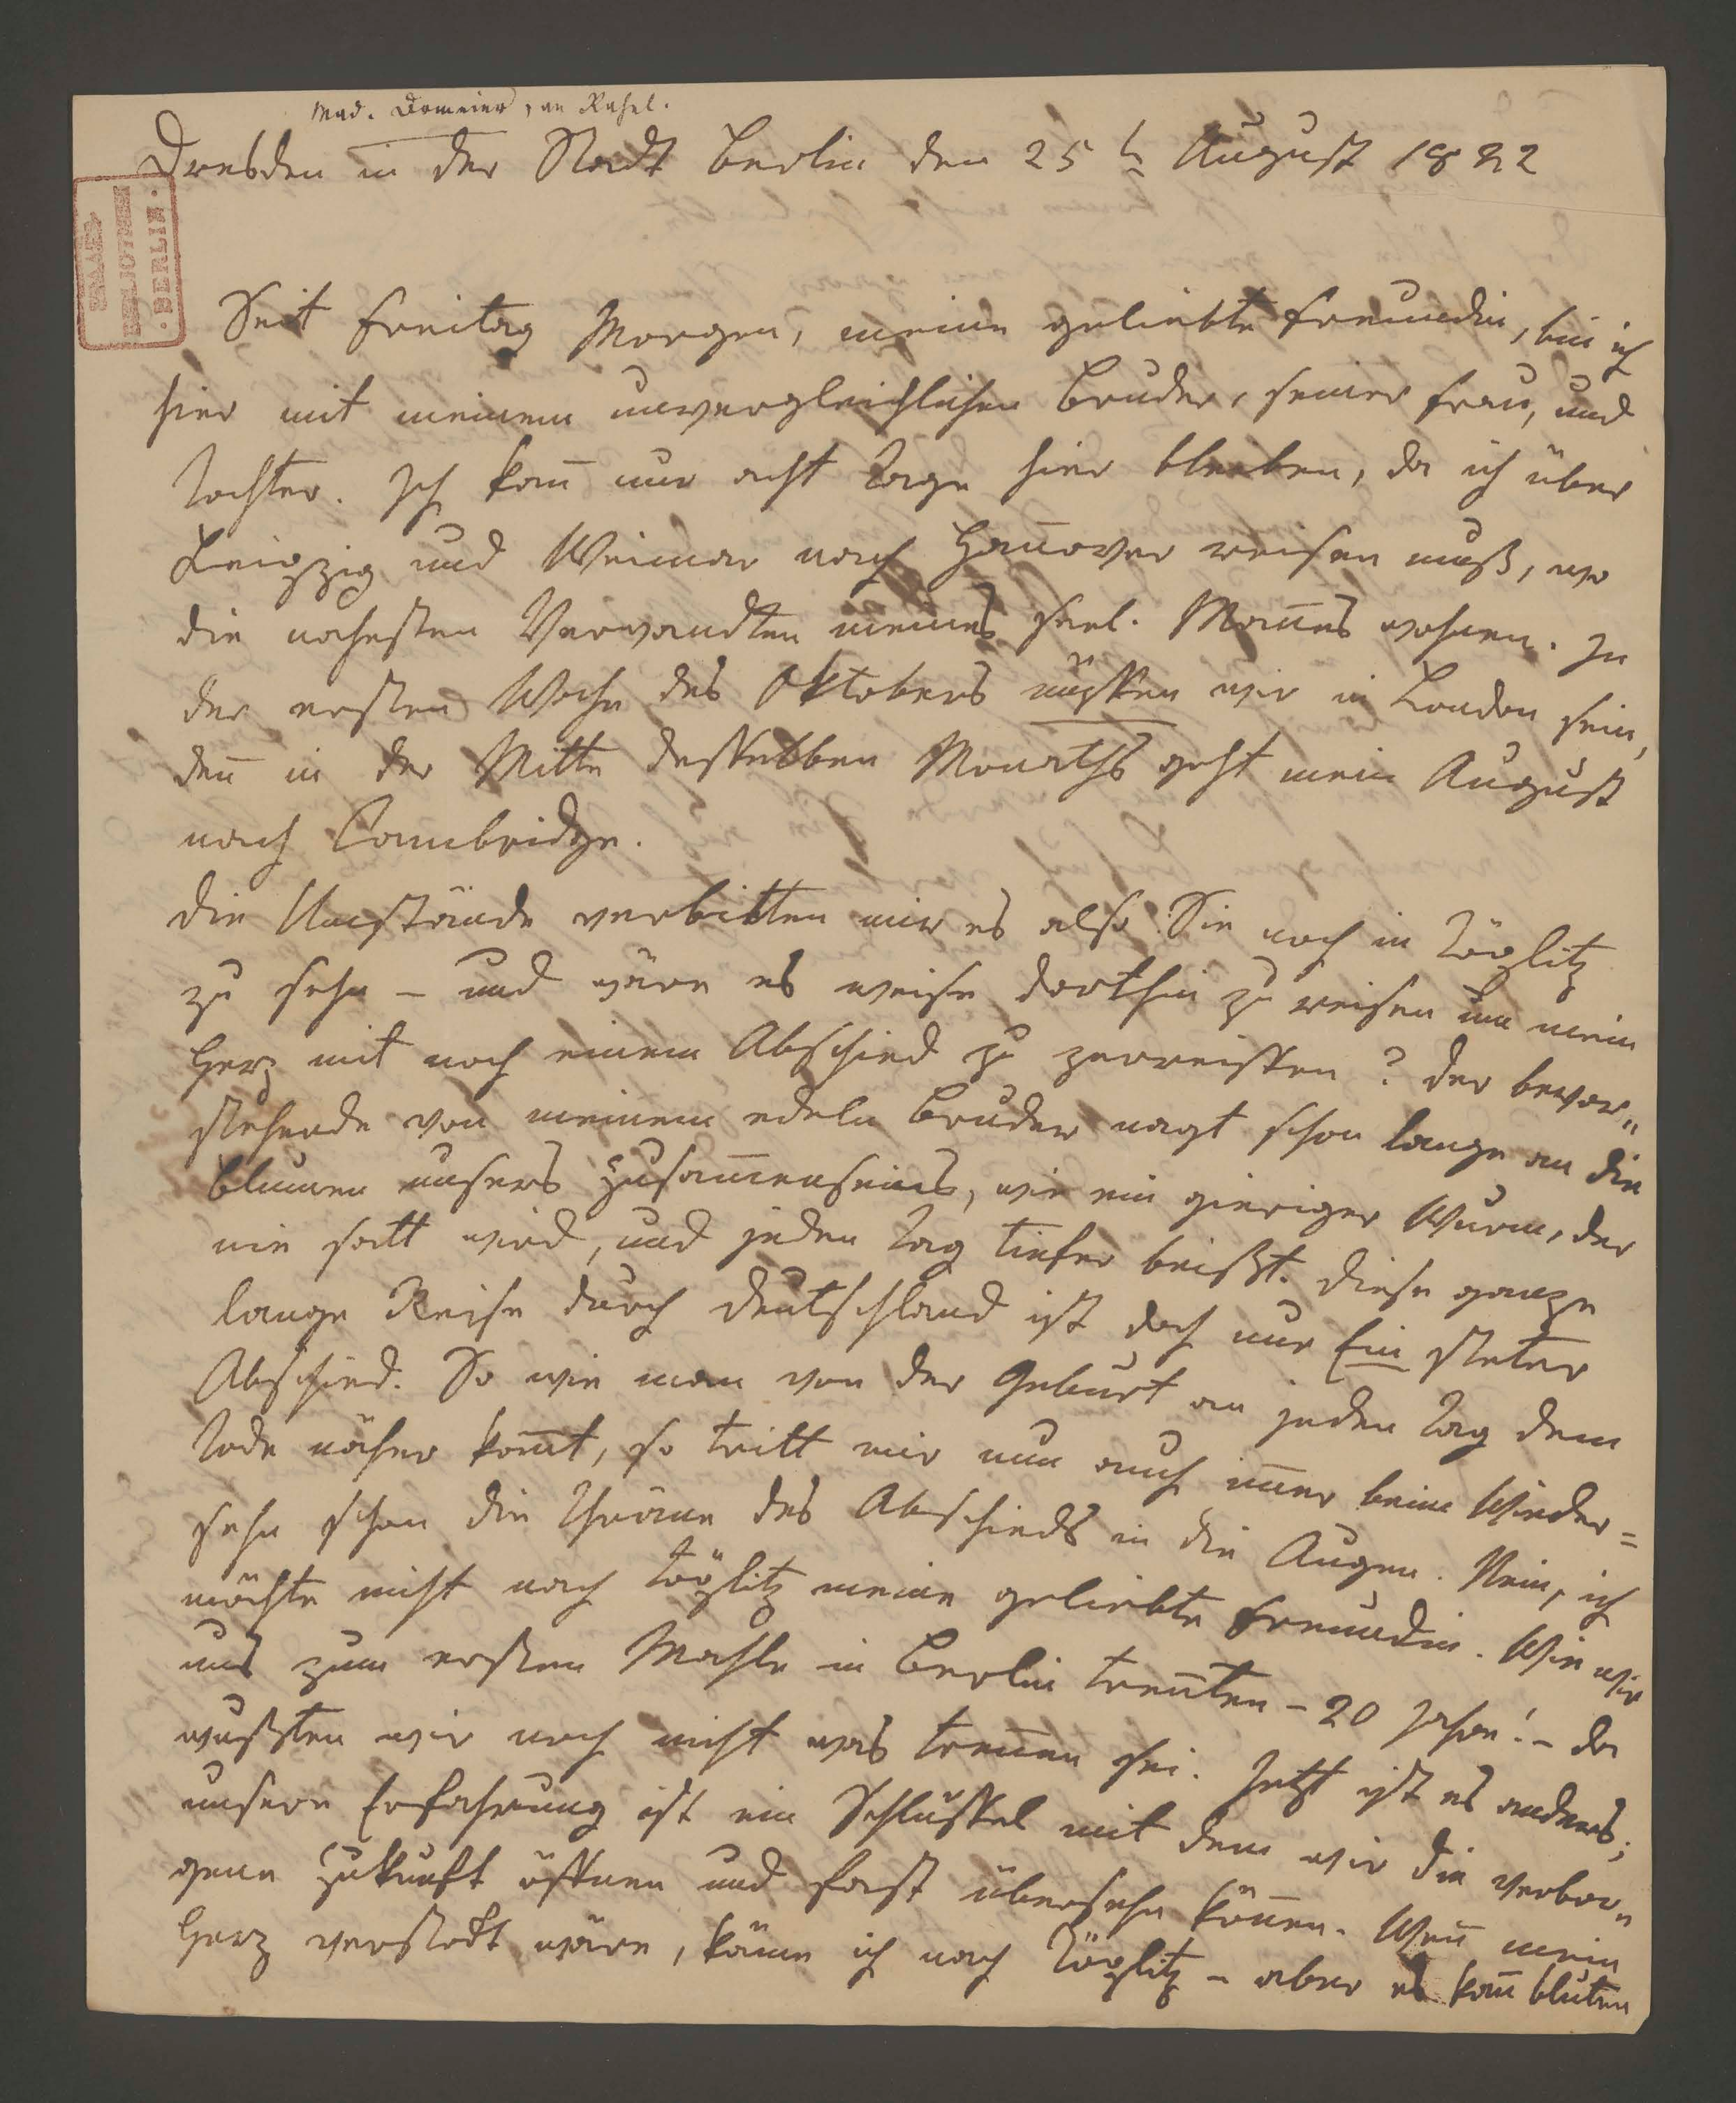 Mad. Domeier, an Rahel.
Dresden in der Stadt Berlin den 25t August 1822
Seit Freitag Morgen, meine geliebte Freundin, bin ich
hier mit meinem unvergleichlichen Bruder, seiner Frau, und
Tochter. Ich kan̄ nur acht Tage hier bleiben, da ich über
Leipzig und Weimar nach Han̄over reisen muß, wo
die nachsten Verwandten meines seel. Man̄es wohnen. In
der ersten Woche des Oktobers müssen wir in London sein,
den̄ in der Mitte desselben Monaths geht mein August
nach Cambridge.
Die Umstände verbitten mir es also Sie noch in Töplitz
zu sehn – und wäre es weise dorthin zu reisen um mein
Herz mit noch einem Abschied zu zerreissen? Der bevor„
stehende von meinem edeln Bruder nagt schon lange an die
Blumen unsers Zusam̄enseins, wie ein gieriger Wurm, der
nie satt wird, und jeden Tag tiefer beißt. Diese ganze
lange Reise durch Deutschland ist doch nur Ein steter
Abschied. So wie man von der Geburt an jeden Tag dem
Tode näher kom̄t, so tritt mir nun auch im̄er beim Wieder=
sehn schon die Thräne des Abschieds in die Augen. Nein, ich
möchte nicht nach Töplitz meine geliebte Freundin. Wie wir
uns zum ersten Mahle in Berlin tren̄ten – 20 Jahre! – da
wußten wir noch nicht was tren̄en sei. Jetzt ist es anders;
unsere Erfahrung ist ein Schlüssel mit dem wir die verbor„
gene Zukunft öffnen und fast übersehn kön̄en. Wen̄ mein
Herz verstockt wäre, käme ich nach Töplitz – aber es kan̄ bluten
STAATS-
BIBLIOTHEK
· BERLIN ·